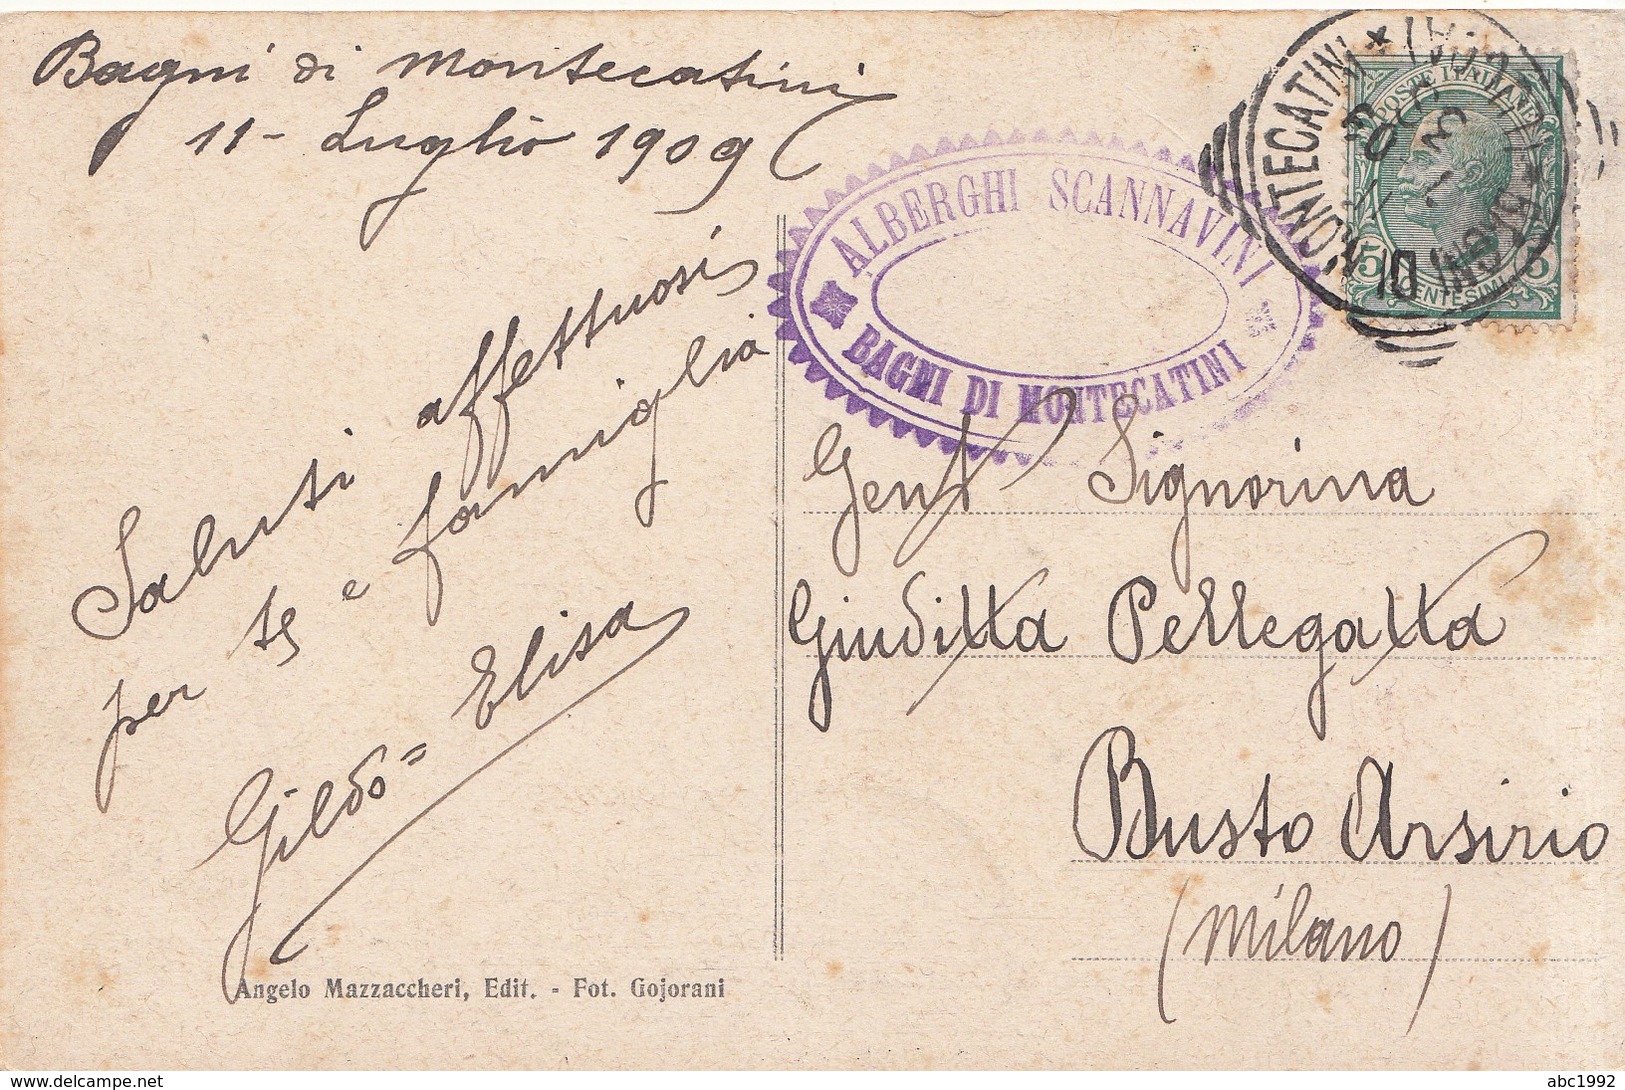 Bagni di Montecatini
11 - Luglio 1909
Saluti affettuosi
per te e famiglia
Gildo = Elisa
Angelo Mazzaccheri, Edit. - Fot. Gojorani
ALBERGHI SCANNAVINI
BAGNI DI MONTECATINI
POSTE ITALIANE
5 5
CENTESIMI
BAGNI DI MONTECATINI *
Gent Signorina
Giuditta Pellegatta
Busto Arsirio
(Milano)
www.delcampe.net
abc1992